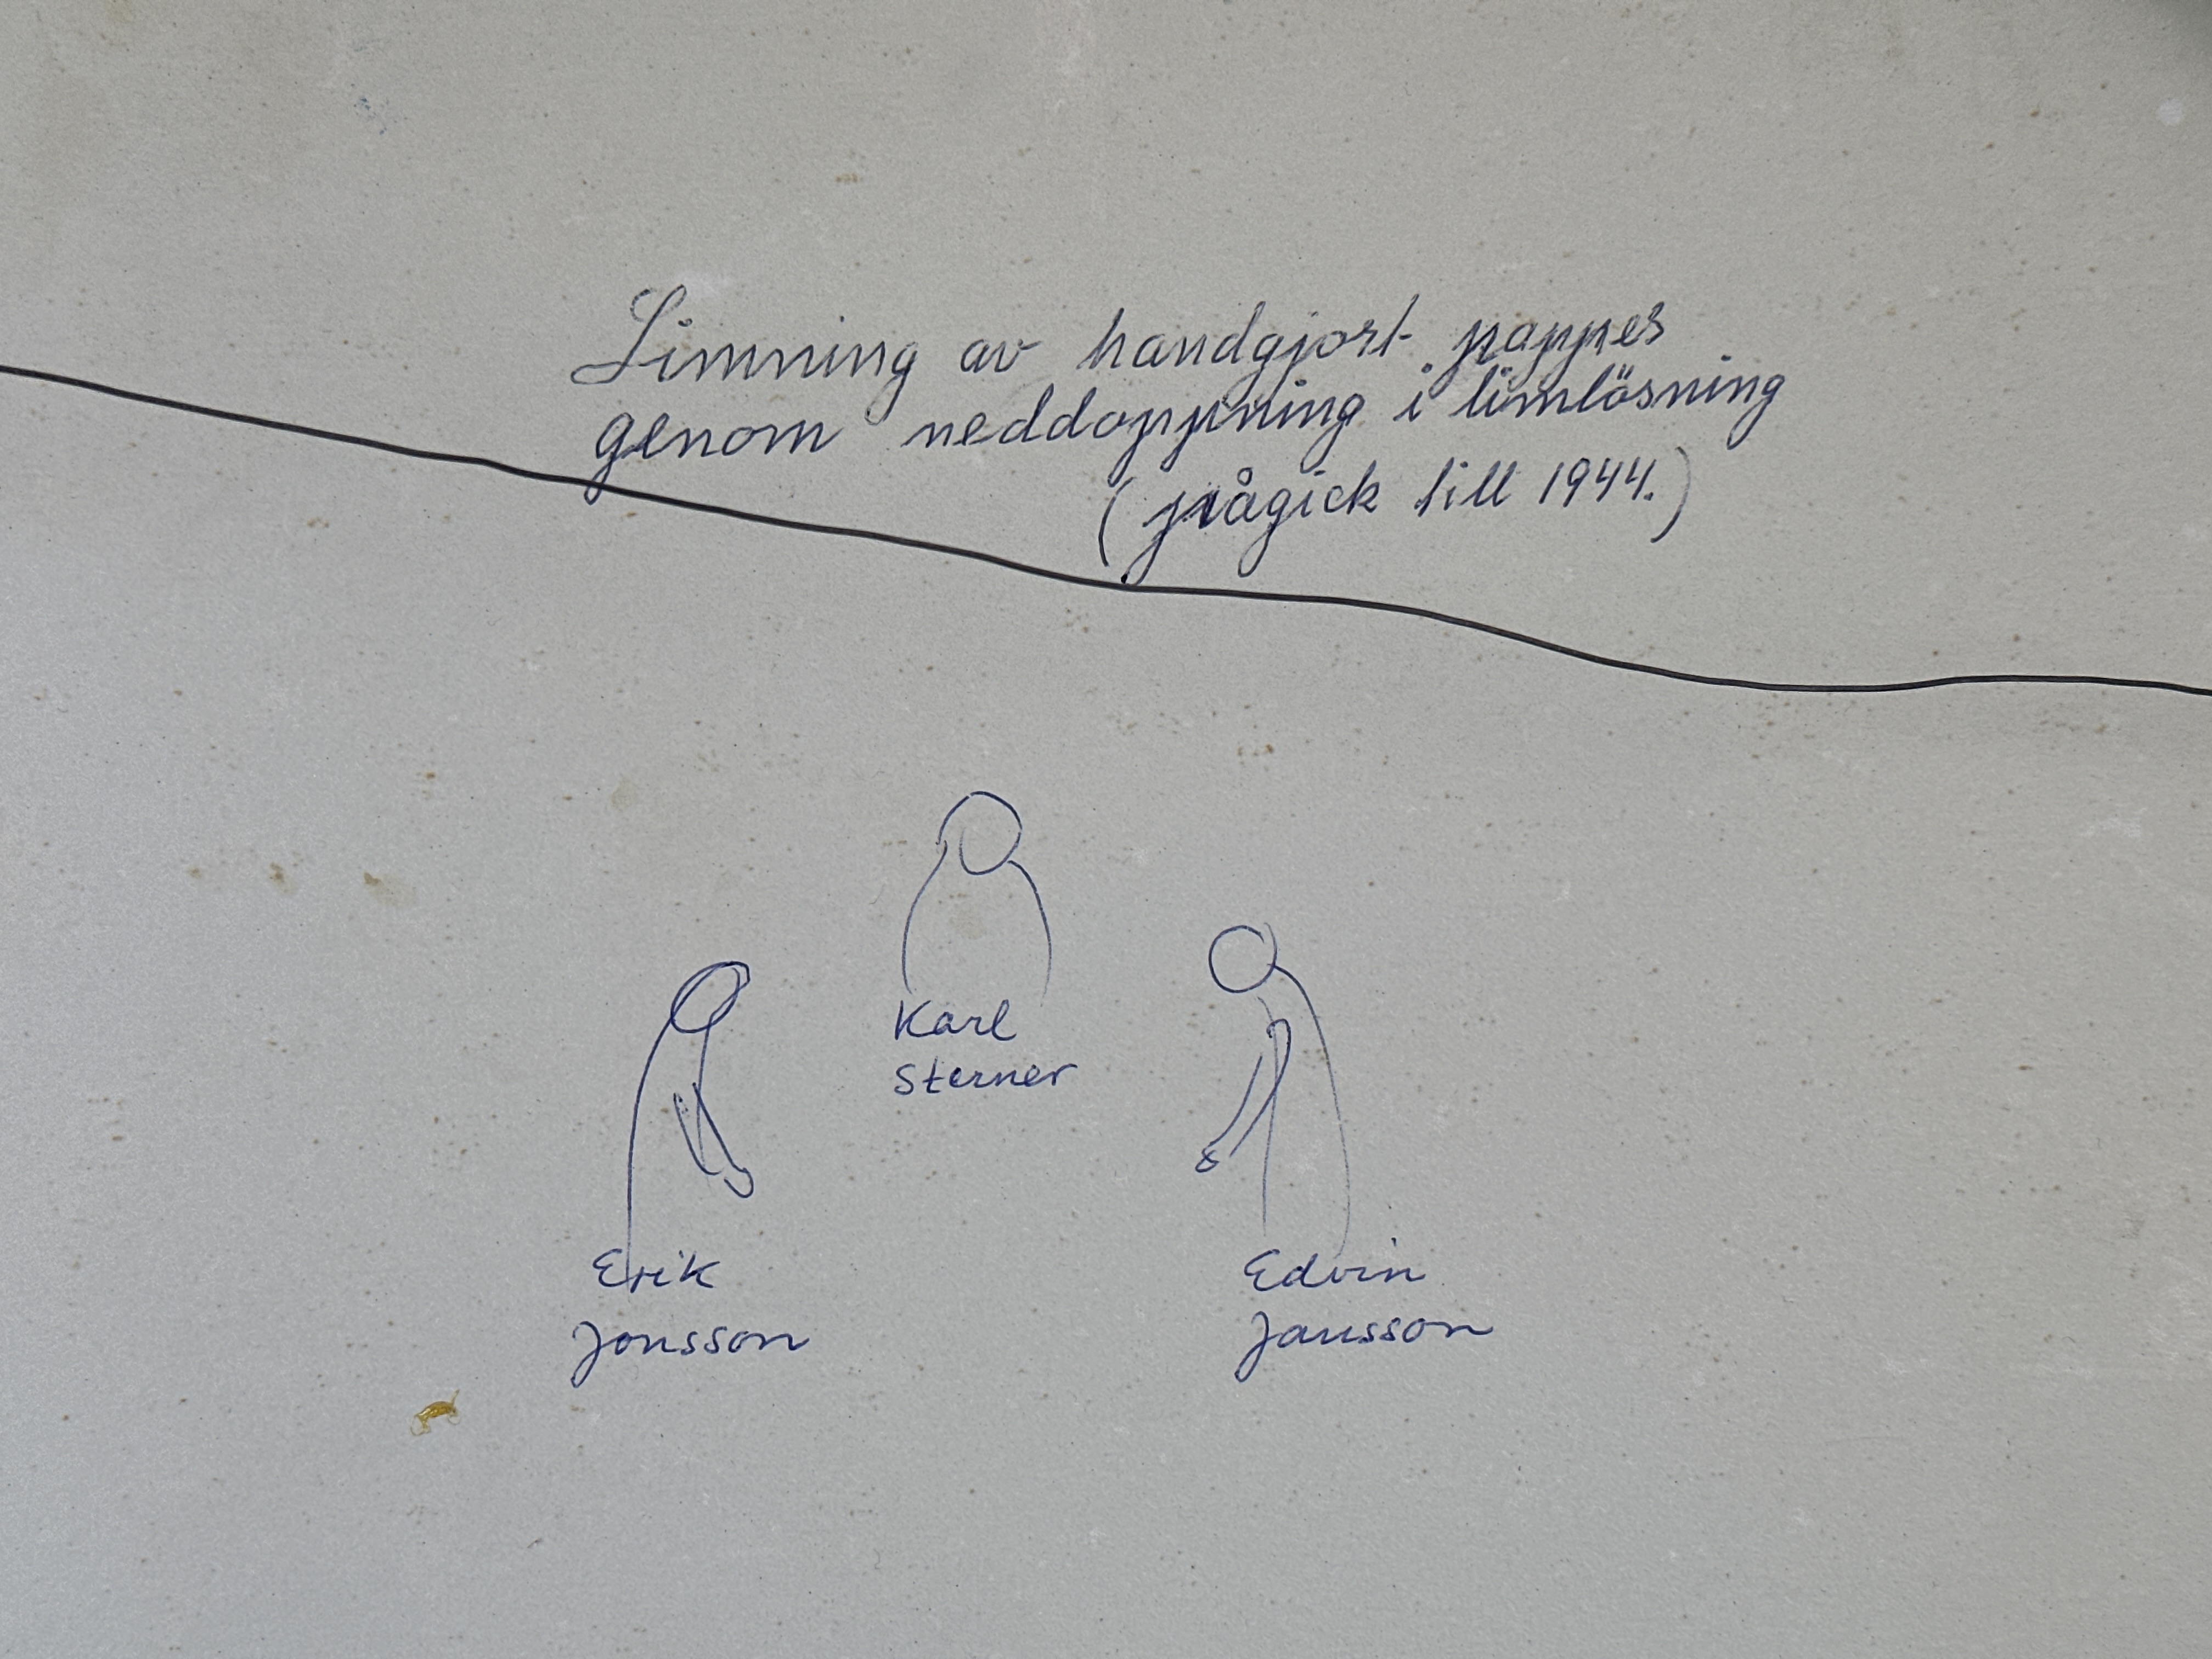 Limning av handgjort papper
genom neddoppning i limlösning
(pågick till 1944.)
Karl
Sterner
Erik
Jonsson
Edvin
Jansson